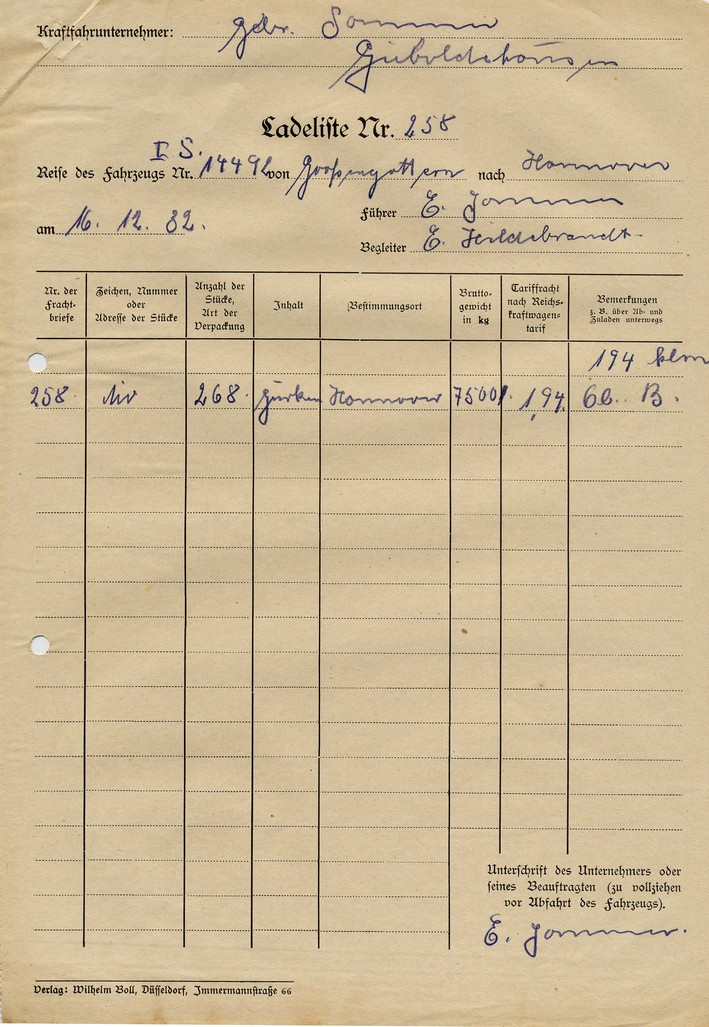 Kraftfahrunternehmer: Gebr. Sommer
Gieboldehausen
Ladeliste Nr. 258
I. S.
Reise des Fahrzeugs Nr. 14492 von Großengottern nach Hannover
am 16. 12. 32. Führer E. Sommer
Begleiter E. Hildebrandt
Nr. der Frachtbriefe
Zeichen, Nummer oder Adresse der Stücke
Anzahl der Stücke, Art der Verpackung
Inhalt
Bestimmungsort
Bruttogewicht in kg
Tariffracht nach Reichskraftwagentarif
Bemerkungen z. B. über Ab- und Zuladen unterwegs
194 klm
258. div 268. Gurken Hannover 7500 194. 6b. B.
Unterschrift des Unternehmers oder
seines Beauftragten (zu vollziehen
vor Abfahrt des Fahrzeugs).
E. Sommer.
Verlag: Wilhelm Boll, Düsseldorf, Immermannstraße 66